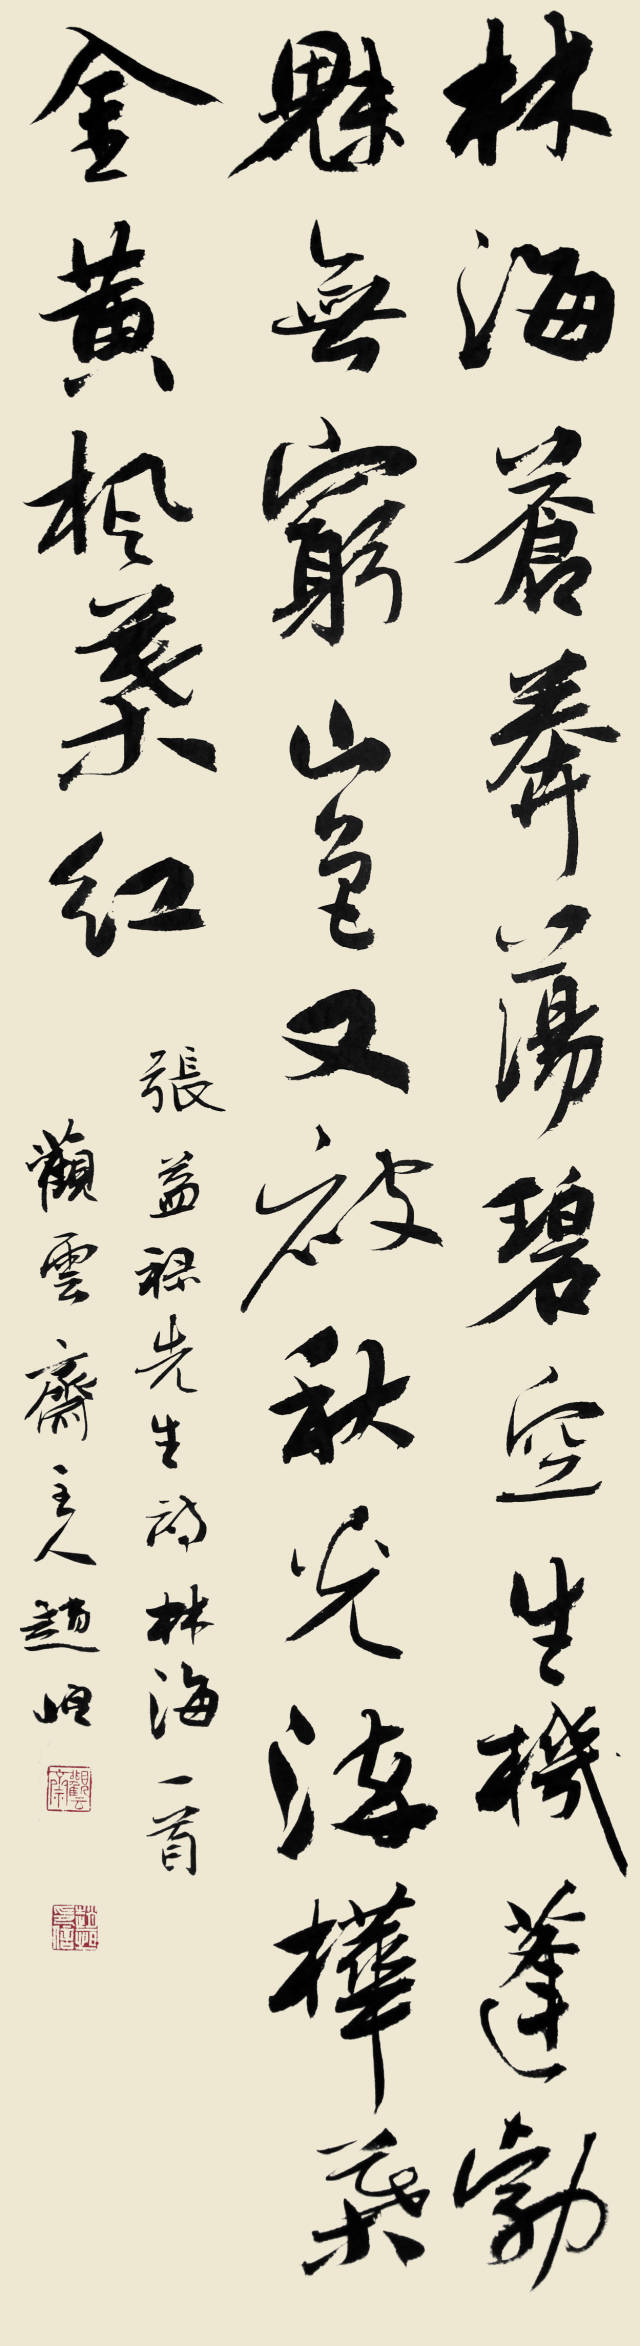 林海蒼莽蕩碧空生機蓬勃
魅無窮山色又被秋光染樺葉
金黃楓葉紅
張益祿先生詩林海一首
觀雲齋主人趙
觀雲齋